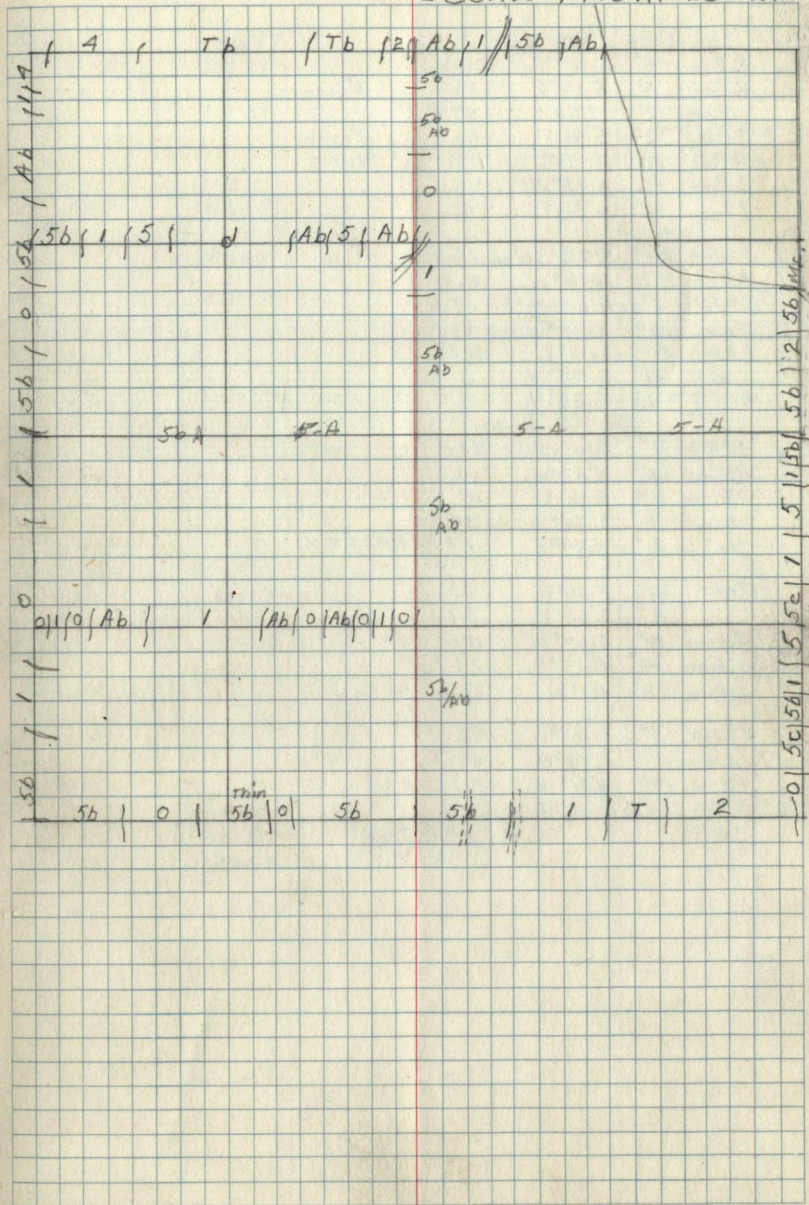 4 Tb Tb 2 Ab 1 5b Ab
5b
5b
Ab
0
5b 1 5 d Ab 5 Ab
1
5b
Ab
5b A 5-A 5-A 5-A
5b
Ab
0 1 0 Ab 1 Ab 0 Ab 0 1 0
5b/Ab
Thin
5b 0 5b 0 5b 5b 1 T 2
5b 1 1 0 1 1 5b 1 0 5b Ab 1 4
0 5c 5b 1 5 5c 1 5 1 5b 5b 2 5b Mr.